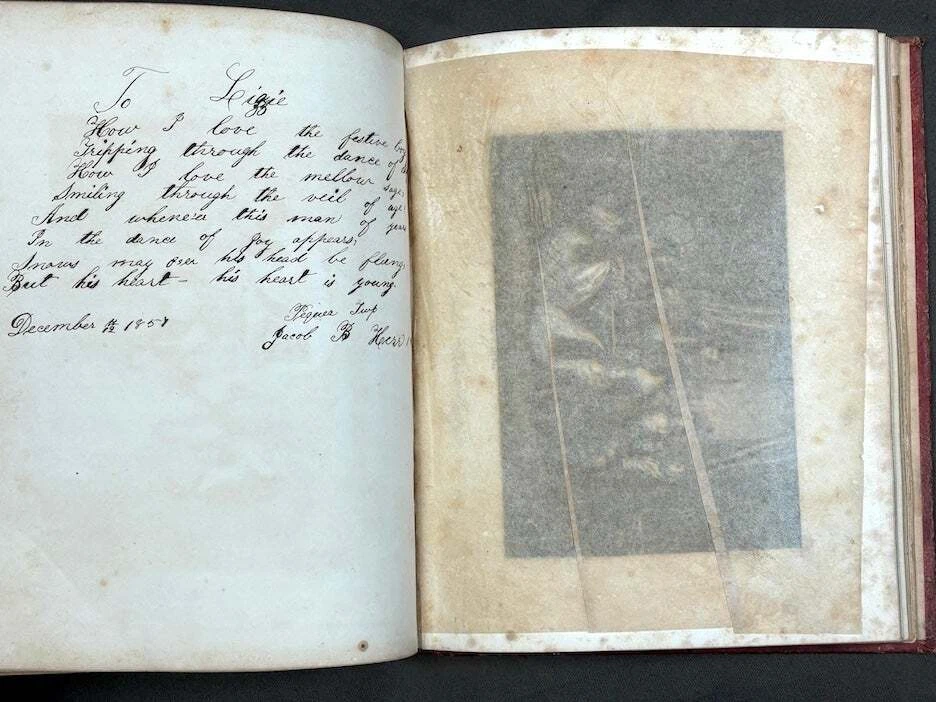 To Lizzie
How I love the festive boy
Tripping through the dance of
How I love the mellow sage,
Smiling through the veil of age
And whene'er this man of years
In the dance of joy appears,
Snows may o'er his head be flung,
But his heart - his heart is young.
Pequea Twp
December 1857
Jacob B Herr